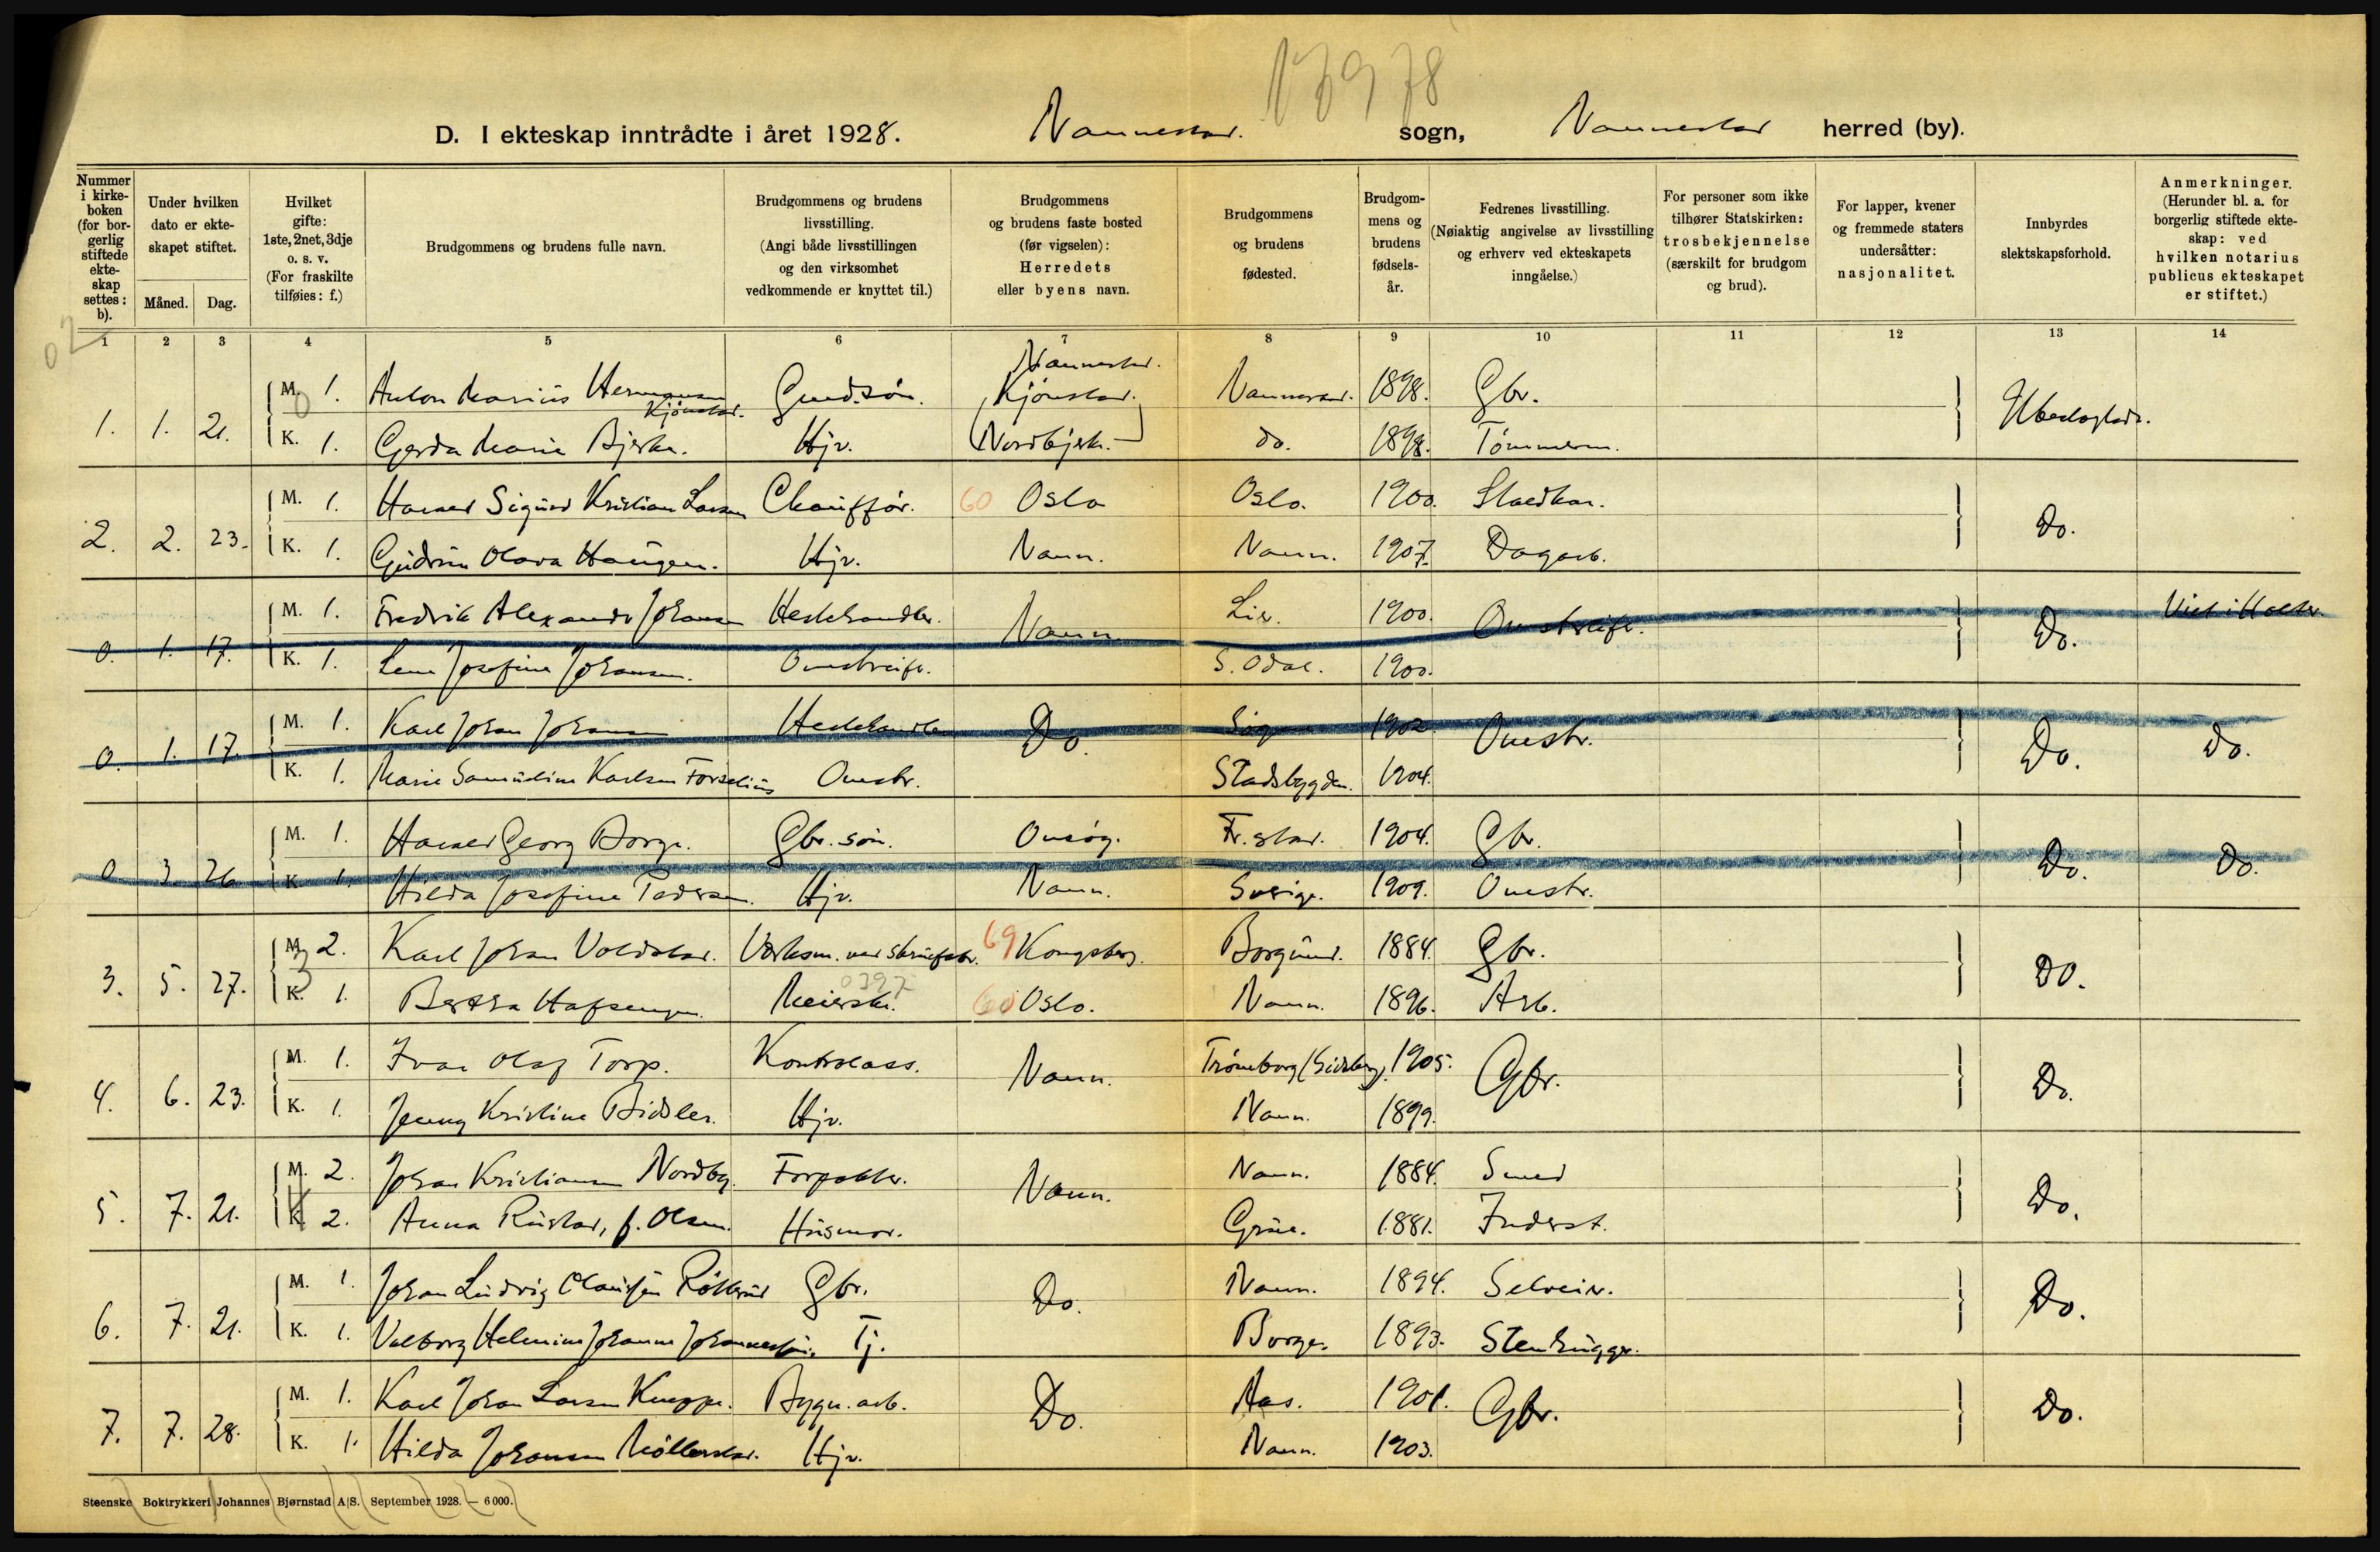 D. I ekteskap inntrådte i året 1928. Nannestad. sogn, Nannestad herred (by).
Nummer i kirkeboken (for borgerlig stiftede ekteskap settes: b).
Under hvilken dato er ekteskapet stiftet.
Måned. Dag.
Hvilket gifte: 1ste, 2net, 3dje o. s. v. (For fraskilte tilføies: f.)
Brudgommens og brudens fulle navn.
Brudgommens og brudens livsstilling. (Angi både livsstillingen og den virksomhet vedkommende er knyttet til.)
Brudgommens og brudens faste bosted (før vigselen): Herredets eller byens navn.
Brudgommens og brudens fødested.
Brudgommens og brudens fødselsår.
Fedrenes livsstilling. (Nøiaktig angivelse av livsstilling og erhverv ved ekteskapets inngåelse.)
For personer som ikke tilhører Statskirken: trosbekjennelse (særskilt for brudgom og brud).
For lapper, kvener og fremmede staters undersåtter: nasjonalitet.
Innbyrdes slektskapsforhold.
Anmerkninger. (Herunder bl. a. for borgerlig stiftede ekteskap: ved hvilken notarius publicus ekteskapet er stiftet.)
1 2 3 4 5 6 7 8 9 10 11 12 13 14
Nannestad.
M. 1. Anton Marius Hermansen Kjønstad. Gmd.søn. Kjønstad. Nannestad. 1898. Gbr.
1. 1. 21. Ubeslægtede.
K. 1. Gerda Marie Bjerke. Hjv. Nordbjerke. do. 1898. Tømmerm.
M. 1. Harald Sigurd Kristian Larsen Chauffør. 60 Oslo Oslo. 1900.
2. 2. 23. Do.
K. 1. Gudrun Olava Haugen. Hjv. Nann. Nann. 1907. Dagarb.
M. 1. Fredrik Alexander Johansen Hestehandler. Lier. 1900.
0. 1. 17. Nann. Omstreifr. Do. Viet i Holter.
K. 1. Lena Josefine Johansen. Omstreifr. S. Odal. 1900.
M. 1. Karl Johan Johansen Hestehandler 1902.
0. 1. 17. Do. Omstr. Do. Do.
K. 1. Marie Samueline Karlsen Forselius Omstr. Stadsbygden. 1904.
M. 1. Harald Georg Borge. Gbr. søn. Onsøy. Fr.stad. 1904. Gbr.
0 3 26 Do. Do.
K. 1. Hilda Josefine Pedersen. Hjv. Nann. Sverige. 1909. Omstr.
M. 2. Karl Johan Voldstad. Verksm. ved skruefabr. 69 Kongsberg. Borgund. 1884. Gbr.
3. 5. 27. DO.
K. 1. Bertha Hafsengen. Meierske. 0397 60 Oslo. Nann. 1896. Arb.
M. 1. Ivar Olaf Torp. Kontrolass. Trømborg (Eidsberg). 1905.
4. 6. 23. Nann. Gbr. Do.
K. 1. Jenny Kristine Bidsler. Hjv. Nann. 1899.
M. 2. Johan Kristiansen Nordby. Forpakter. Nann. 1884. Smed
5. 7. 21. Nann. Do.
K. 2. Anna Rustad, f. Olsen. Husmor. Grue. 1881. Inderst.
M. 1. Johan Ludvig Claussen Gbr. Nann. 1894. Selveier.
6. 7. 21. Do. Do.
K. 1. Valborg Helmine Johanne Johannessen. Tj. Borge. 1893. Stenhugger.
M. 1. Karl Johan Larsen Kneppe. Bygn. arb. Aas. 1901.
7. 7. 28. Do. Gbr. Do.
K. 1. Hilda Johansen Møllerstad. Hjv. Nann. 1903.
Steenske Boktrykkeri Johannes Bjørnstad A|S. September 1928. — 6 000.